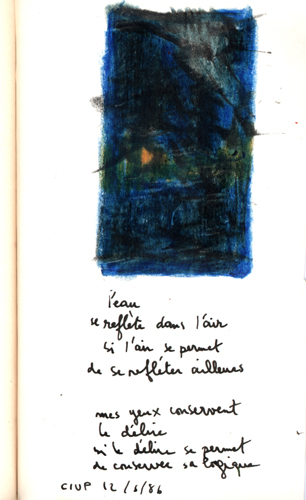 l'eau
se reflète dans l'air
si l'air se permet
de se refléter ailleurs
mes yeux conservent
le délire
si le délire se permet
de conserver sa logique
CIUP 12/6/86